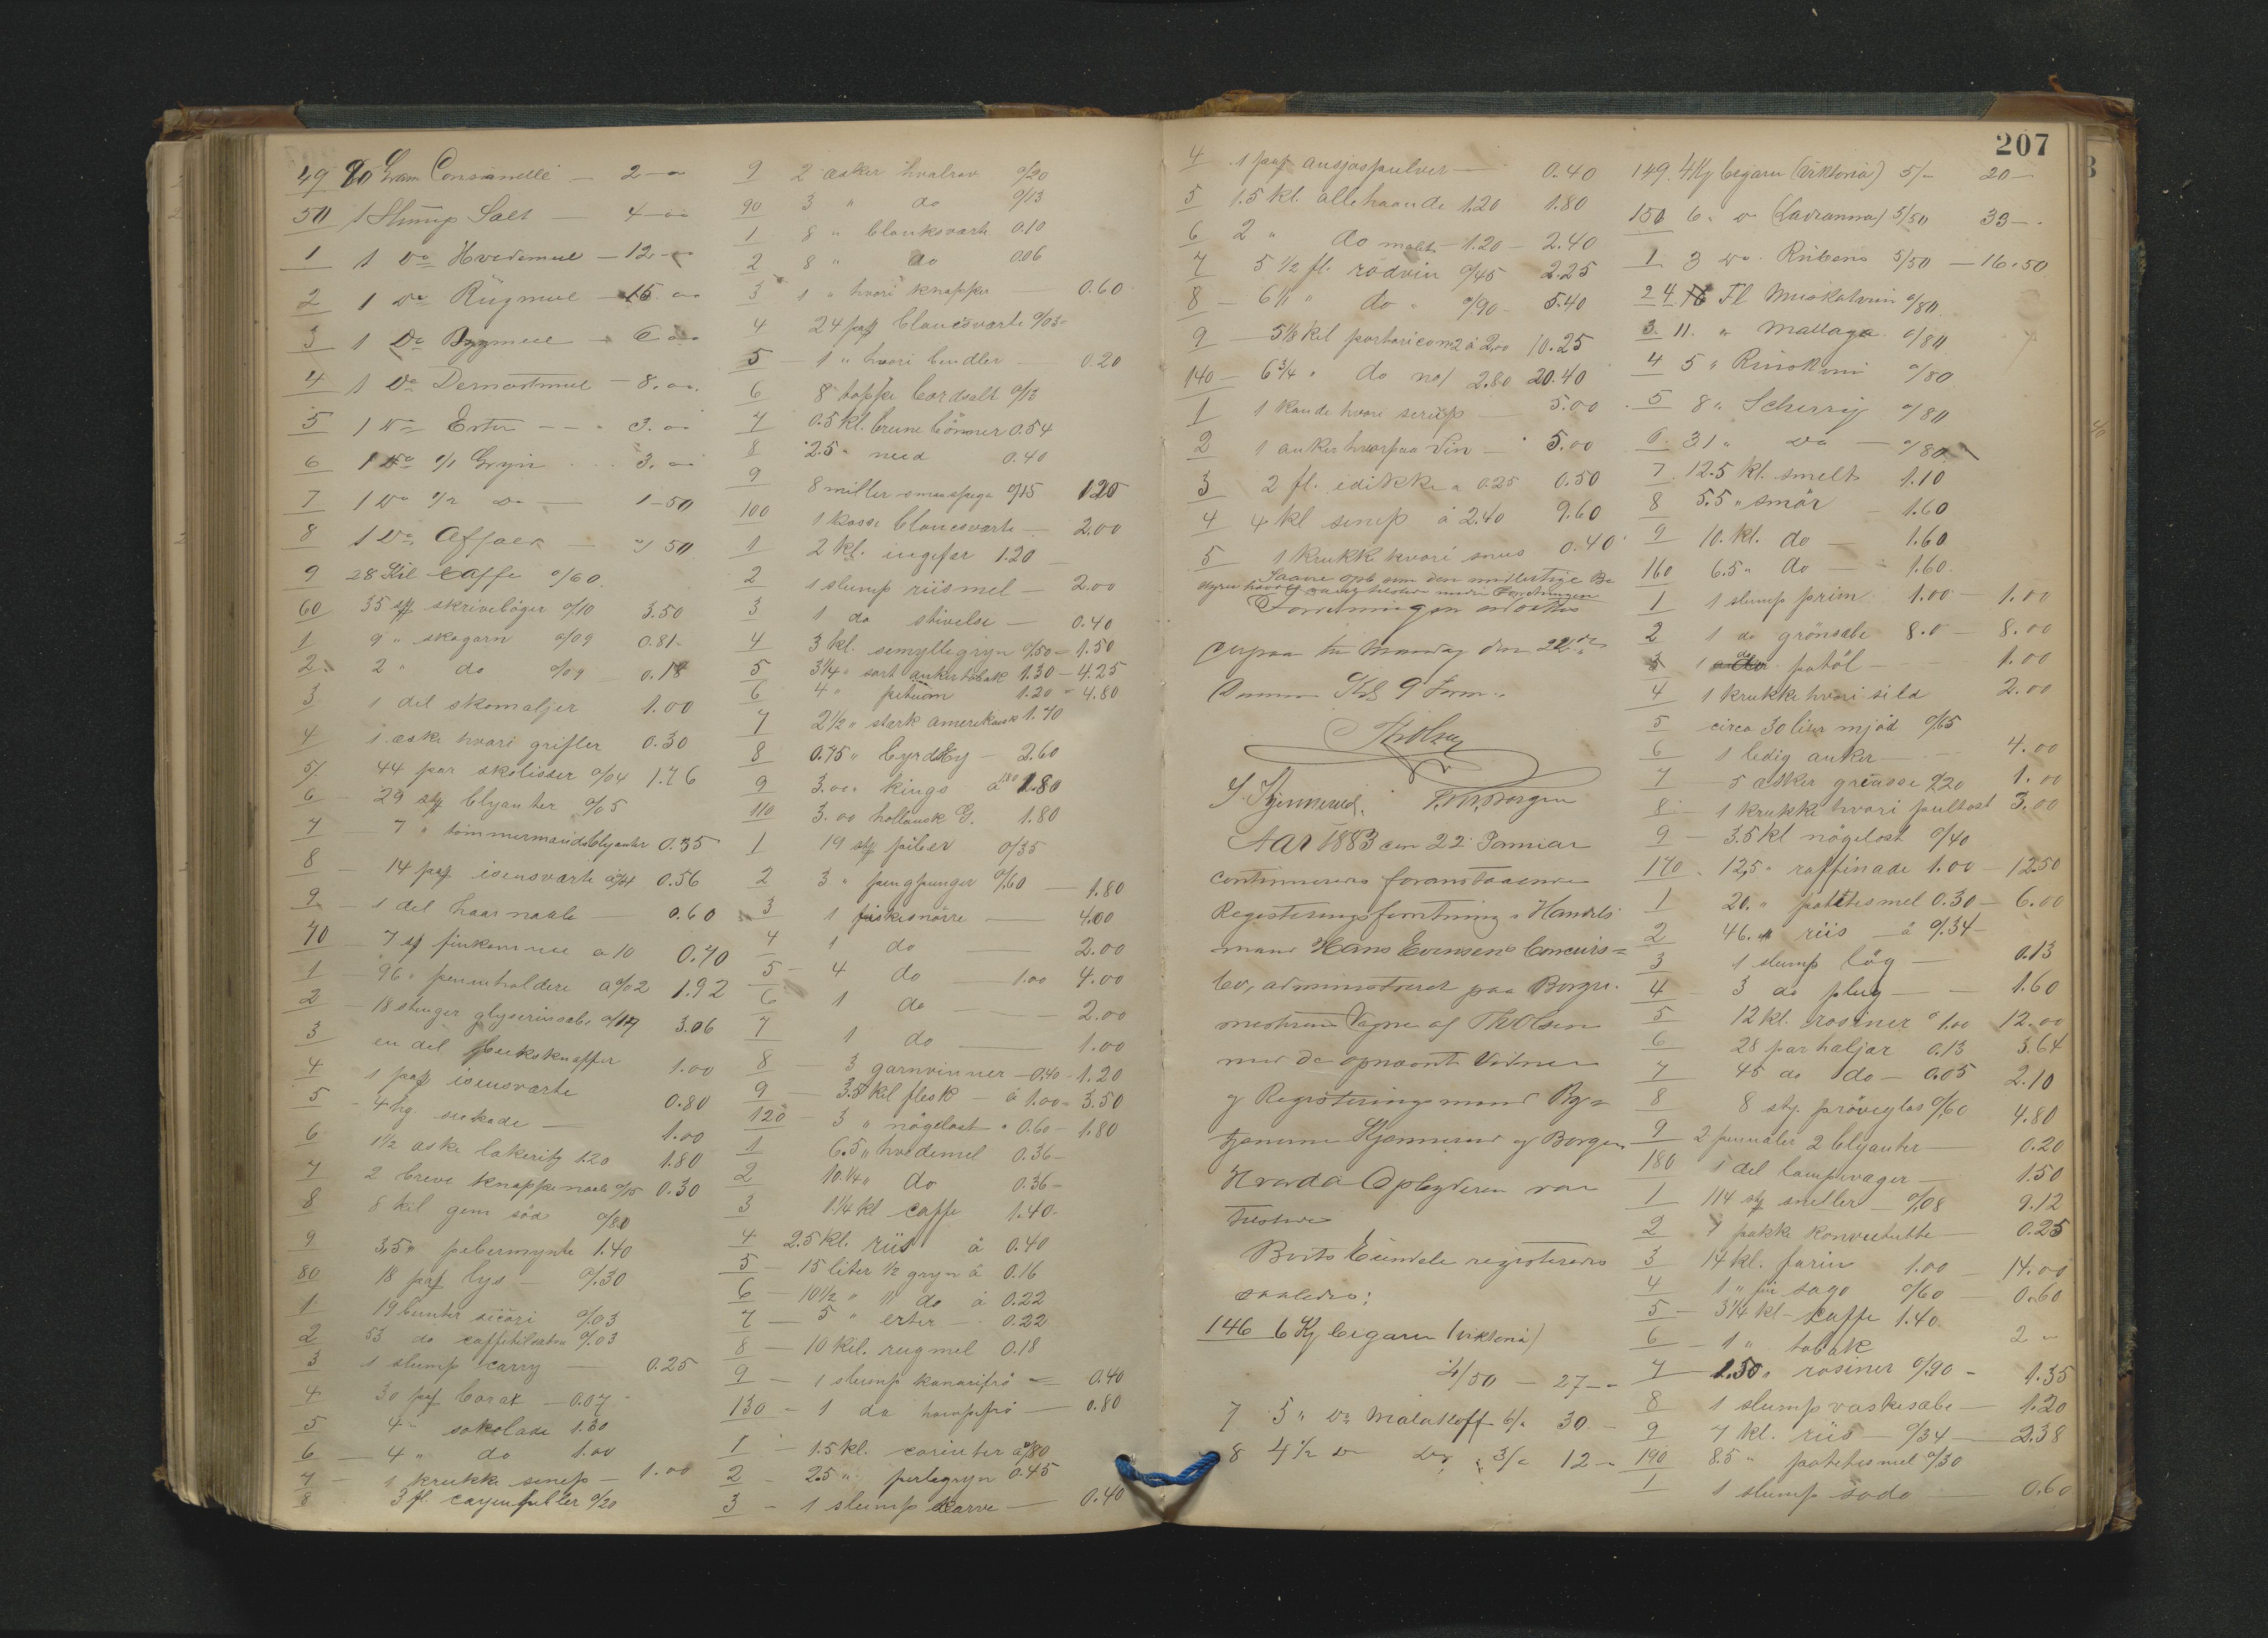 49 80 Gram Consianelle — 2 —
50 1 Slump Salt — 4 —
1 1 Do Hvedemeel — 12 —
2 1 Do Rugmeel — 15.
3 1 Do Bygmeel — 6
4 1 Do — 8.
5 1 Do Erter — 3.
6 1 Do 1/1 Gryn 3.
7 1 Do 1/2 Do — 1-50
8 1 Do Affaer — " 50
9 28 Kil Caffe o/60.
60 35 st skrivebøger o/10 3.50
1 9 " skogarn o/09 0.81
2 2 " do o/09 0.18
3 1 del skomaljer 1.00
4 1 æske hvori grifler 0.30
5 44 par skolisser o/04 1.76
6 29 st blyanter o/05
7 7 " tømmermandsblyanter 0.35
8 14 pak isensværte o/04 0.56
9 1 del haarnaale — 0.60
70 7 st finkamme a 10 0.70
1 96 " penneholdere a o/02 1.92
2 18 stenger glyserinsæbe o/17 3.06
3 en del buksknapper 1.00
4 1 pak isensværte 0.80
5 4 hg. sukade — 1.00
6 1 1/2 æske lakeritz 1.20 1.80
7 2 breve knappenaale o/15 0.30
8 8 kil gem søda o/80
9 3,5 " pebermynte 1.40
80 18 pak lys — o/30
1 19 bunter sicori o/03
2 53 do caffetilsætn o/03
3 1 slump carry — 0.25
4 30 pak borax — 0.07
5 4 " sokolade 1.30
6 4 " do 1.00
7 1 krukke senep — 1.00
8 3 fl. cayenpebber o/20
9 2 æsker hvalrav o/20
90 3 " do o/13
1 8 " blanksværte 0.10
2 8 " do 0.06
3 1 " hvori knapper — 0.60
4 24 pak blanksværte o/03
5 1 " hvori bendler — 0.20
6 8 toppe bordsalt o/13
7 0.5 kl. brune bønner 0.54
8 2.5 " 0.40
9 8 smaaspiger o/15 1.20
100 1 kasse blanksværte — 2.00
1 2 kl. ingefær 1.20
2 1 slump riismel — 2.00
3 1 do stivelse — 0.40
4 3 kl. semyllegryn o/50 — 1.50
5 3 1/4 " sort ankertobak 1.30 — 4.25
6 4 " petum 1.20 " 4.80
7 2 1/2 " stærk amerikansk 1.70
8 0.75 " 2.60
9 3.00 " kings a 1.80 1.80
110 3.00 hollansk G. 1.80
1 19 st piber o/35
2 3 " pengpunger o/60 — 1.80
3 1 fiskesnørre — 4.00
4 1 do — 2.00
5 4 do — 1.00 4.00
6 1 do — 2.00
7 1 do — 1.00
8 3 garnvinner — 0.40 - 1.20
9 3.5 kil flesk — á 1.00 - 3.50
120 3 " nøgelost " 0.60 - 1.80
1 6.5 " hvedemel 0.36 -
2 10.1/4 " do 0.36 -
3 1 1/4 kl caffe 1.40 -
4 2.5 kl. riis á 0.40
5 15 liter 1/2 gryn á 0.16
6 10 1/2 " 1/1 do á 0.22
7 5 " erter — 0.22
8 10 kil. rugmel 0.18
9 1 slump kanarifrø — 0.40
130 1 do hampfrø — 0.80
1 1.5 kl. corinter a o/80
2 2.5 " perlegryn 0.45
3 1 slump karve — 0.40
207
4 1 pak ansjospulver — 0.40
5 1.5 kl. allehaande 1.20 1.80
6 2 " do malt — 1.20 — 2.40
7 5 1/2 fl. rødvin o/45 2.25
8 6 " do " o/90 - 5.40
9 5 1/8 kil portorico no 2 á 2,00 10.25
140 6 3/4 " do no 1 2.80 20.40
1 1 kande hvori serup — 5.00
2 1 anker hvorpaa Vin — 5.00
3 2 fl. edikke a 0.25 0.50
4 4 kl senep á 2.40 9.60
5 1 krukke hvori snus 0.40
Saavel opb som den midlertidige Be
styrer
Forretningen udsattes
derpaa til Mandag den 22de
Dennes Kl. 9 Form.
ThOlsen
S. Kjennerud. Borgen
Aar 1883 den 22 Januar
continueredes foranstaaende
Registreringsforretning i Handels
mand Hans Evensens Concurs=
bo, administreret paa Borger-
mesterens Vegne af ThOlsen
med de opnævnte Vidner
og Registreringsmænd By=
tjenerne Kjennerud og Borgen
Hvorda Opbyderen var
tilstede
Boets Eiendele registreredes
saaledes:
146 6 Kg Cigarer (viktoria)
4/50 — 27 —
7 5 " Do Malakoff 6/. 30 —
8 4 1/2 Do Do 3/. 12 —
149. 4 Kg Cigarer (viktoria) 5/- 20 —
150 6 " Do (Lavranna) 5/50 33 —
1 3 Do Rubens 5/50 — 16.50
2 4 Fl Muskatvin o/80
3 11. " Mallaga o/80
4 5 " Rinskvin o/80
5 8 " Scherry o/80
6 31 " Do — o/80
7 12.5 kl. smelt 1.10
8 5.5 " smør — 1.60
9 10. kl. do — 1.60
160 6.5 " do — 1.60
1 1 slump prim 1.00 — 1.00
2 1 do grønsæbe 8.0 — 8.00
3 1 do potøl — 1.00
4 1 krukke hvori sild 2.00
5 circa 30 liter mjød o/65
6 1 ledig anker — 4.00
7 5 æsker o/20 1.00
8 1 krukke hvori pultost 3.00
9 3.5 kl nøgelost o/40
170 12,5 " raffinade 1.00 — 12.50
1 20. " potetesmel 0.30 — 6.00
2 46. " riis — á o/34 -
3 1 slump løg — 0.13
4 3 do plug — 1.60
5 12 kl. rosiner " 1.00 12.00
6 28 par haljar 0.13 3.64
7 45 do do — 0.05 2.10
8 8 sty. prøveglas o/60 4.80
9 2 pennaler 2 blyanter — 0.20
180 1 del lampevæger — 1.50
1 114 sty sneller — o/08 9.12
2 — 0.25
3 14 kl. farin 1.00 — 14.00
4 1 " fin sago o/60 — 0.60
5 3 1/4 kl — caffe 1.40
6 1 " tobak 2 —
7 1.50 " rosiner o/90 - 1.35
8 1 slump vaskesæbe — 1.20
9 7 kl. riis — o/34 — 2.38
190 8.5 " potetesmel o/30
1 1 slump soda — 0.60